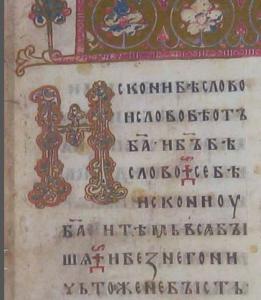 Искони бѣ слово
и слово бѣ отъ
б҃а и б҃ъ бѣ
слово· се бѣ
искони оу
б҃а и тѣмь всѧ бꙑ
шѧ· и без него ни
чьтоже не бꙑсть